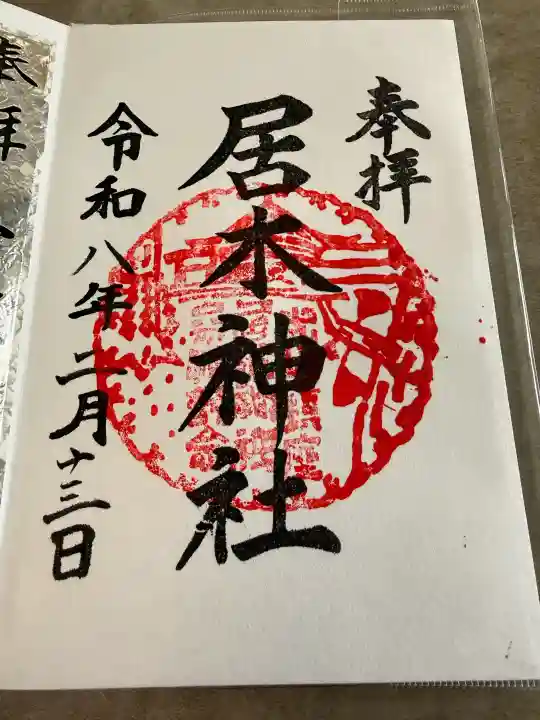 奉拝
居木神社
令和八年二月十三日
奉拝